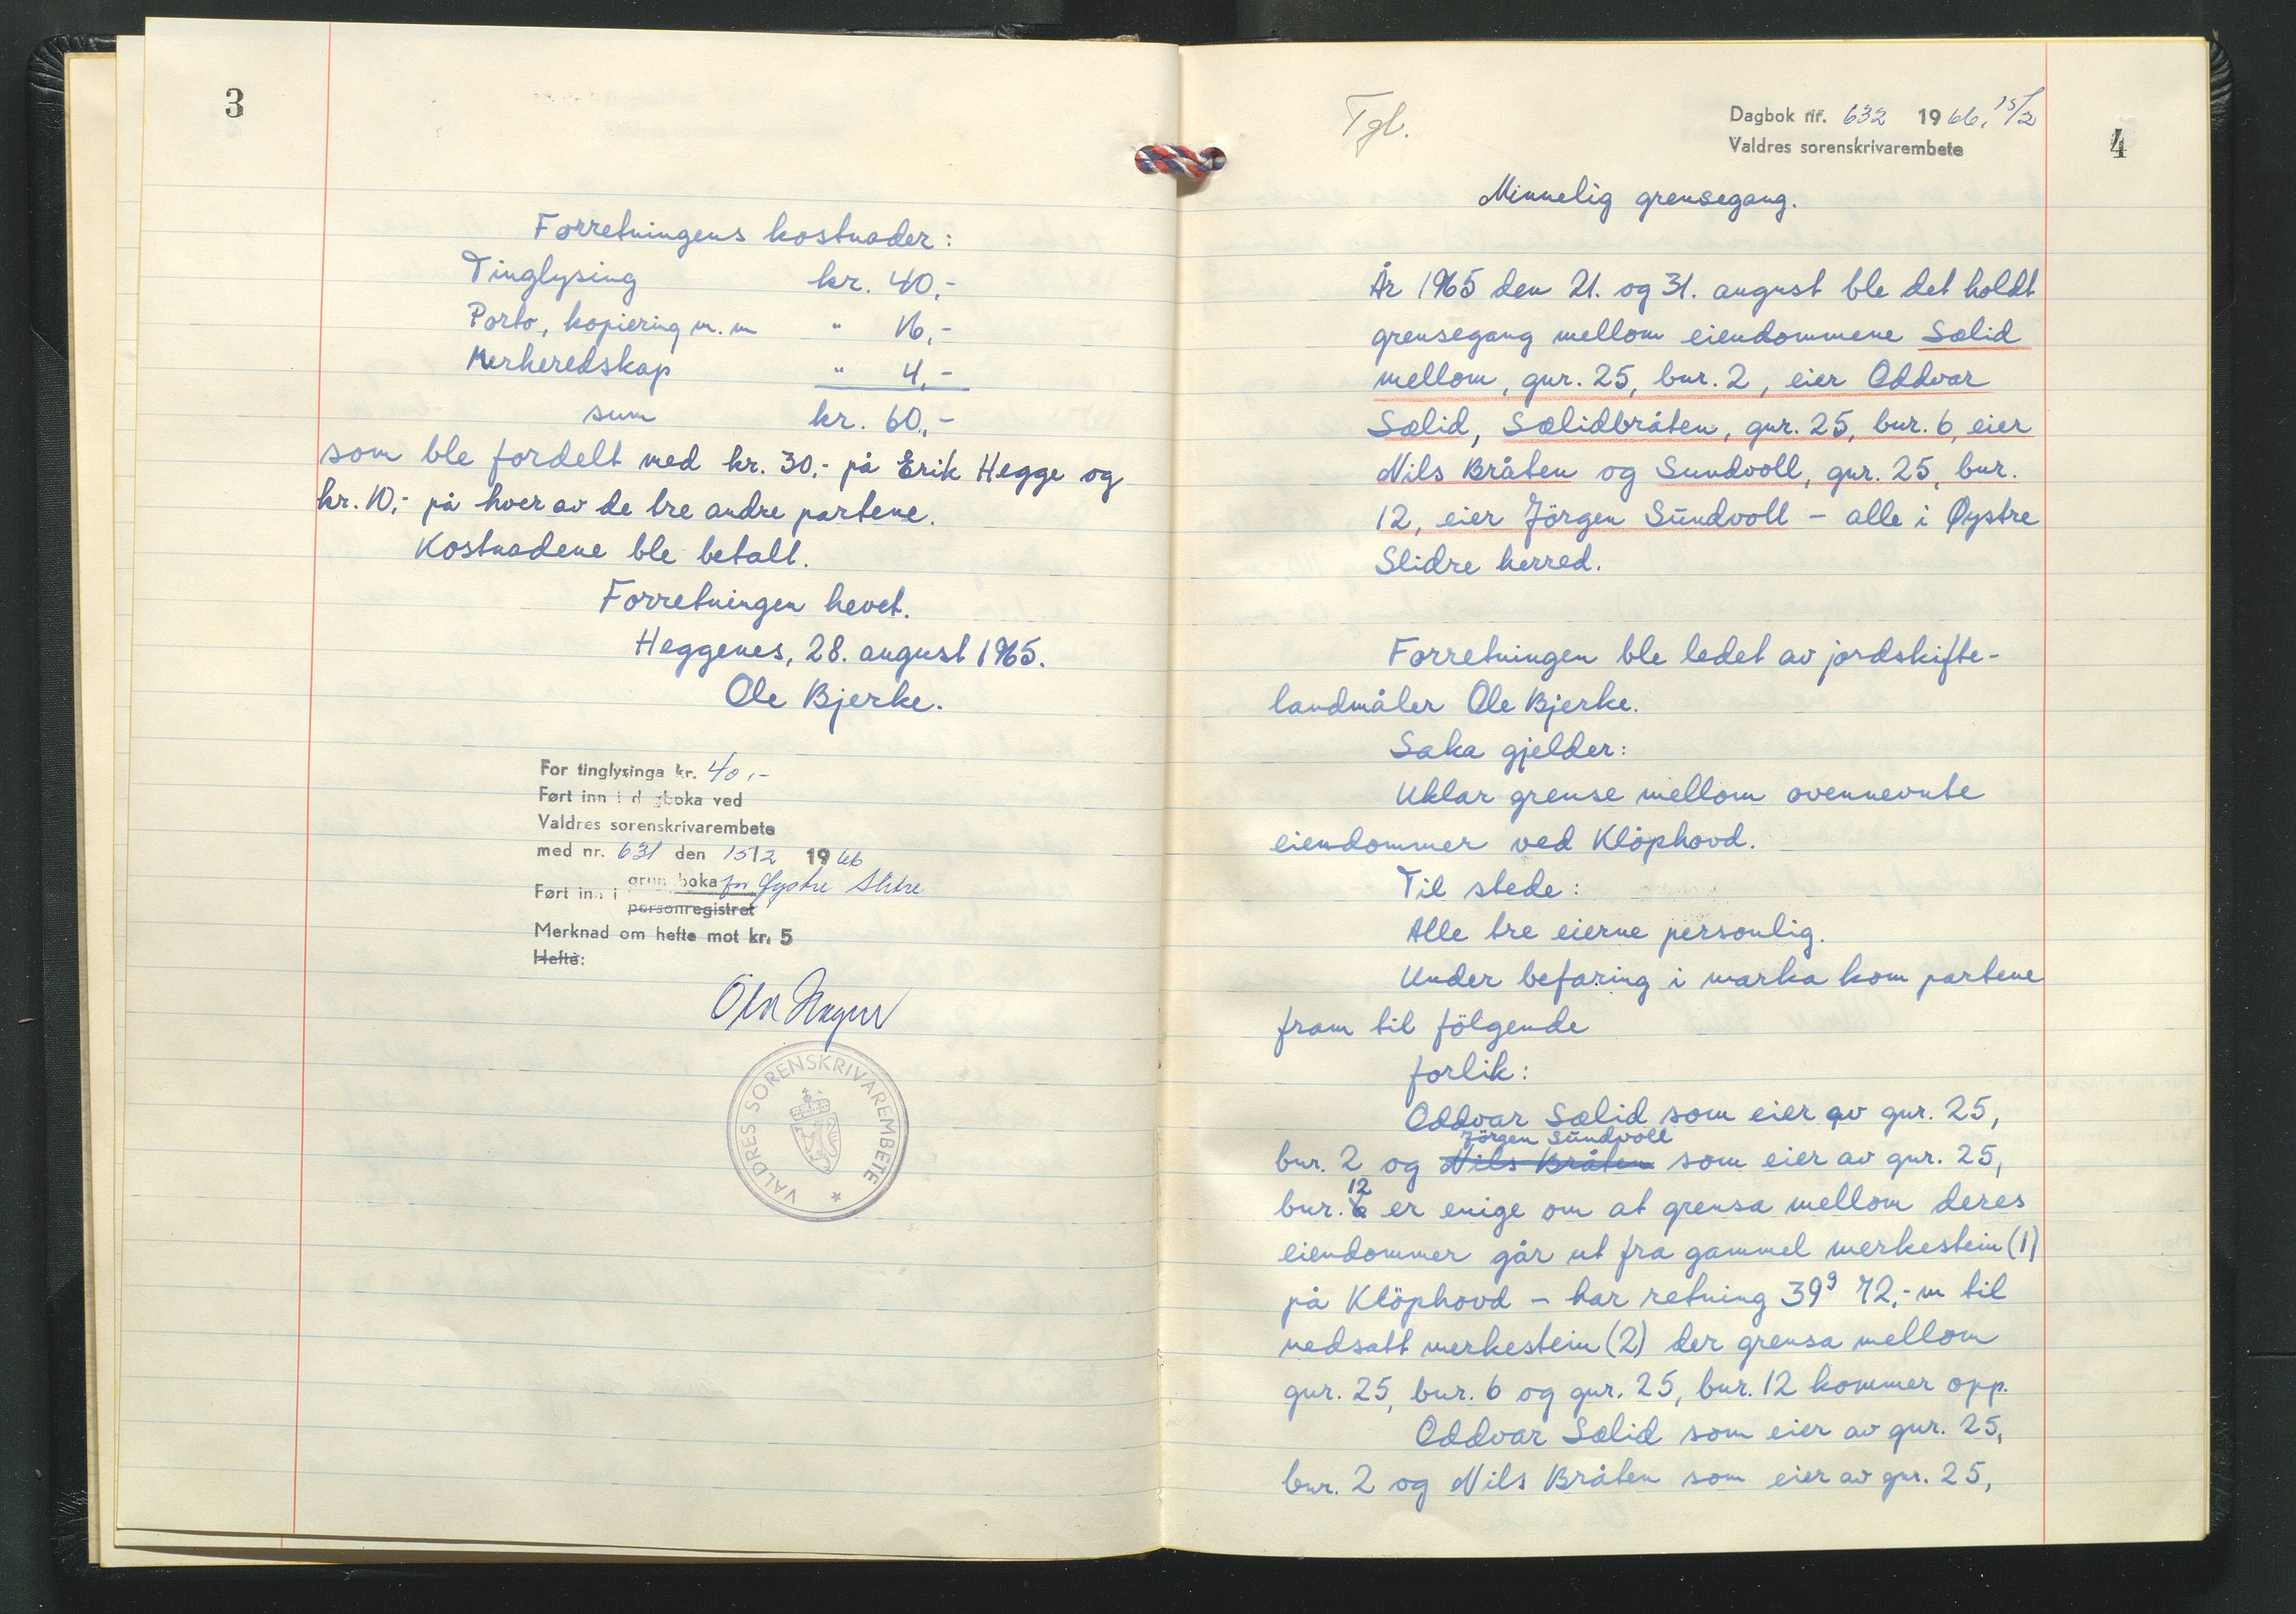 3
Forretningens kostnader:
Tinglysing kr. 40,-
Porto, kopiering m.m " 16,-
Merkeredskap " 4,-
sum kr. 60,-
som ble fordelt med kr. 30,- på Erik Hegge og
kr. 10,- på hver av de tre andre partene.
Kostnadene ble betalt.
Forretningen hevet.
Heggenes, 28. august 1965.
Ole Bjerke.
For tinglysinga kr. 40,-
Ført inn i dagboka ved
Valdres sorenskrivarembete
med nr. 631 den 15/2 1966
Ført inn i grunnboka for Øystre Slidre
personregistret
Merknad om hefte mot kr. 5
Hefte:
VALDRES SORENSKRIVAREMBETE *
Tgl.
Dagbok nr. 632 1966, 15/2
Valdres sorenskrivarembete
4
Minnelig grensegang.
År 1965 den 21. og 31. august ble det holdt
grensegang mellom eiendommene Sælid
mellom, gnr. 25, bnr. 2, eier Oddvar
Sælid, Sælidbråten, gnr. 25, bnr. 6, eier
Nils Bråten og Sundvoll, gnr. 25, bnr.
12, eier Jörgen Sundvoll – alle i Øystre
Slidre herred.
Forretningen ble ledet av jordskifte-
landmåler Ole Bjerke.
Saka gjelder:
Uklar grense mellom ovennevnte
eiendommer ved Klöphovd.
Til stede:
Alle tre eierne personlig.
Under befaring i marka kom partene
fram til fölgende
forlik:
Oddvar Sælid som eier av gnr. 25,
Jörgen Sundvoll
bnr. 2 og Nils Bråten som eier av gnr. 25,
12
bnr. 6 er enige om at grensa mellom deres
eiendommer går ut fra gammel merkestein (1)
på Klöphovd – har retning 39g 72,- m til
nedsatt merkestein (2) der grensa mellom
gnr. 25, bnr. 6 og gnr. 25, bnr. 12 kommer opp.
Oddvar Sælid som eier av gnr. 25,
bnr. 2 og Nils Bråten som eier av gnr. 25,